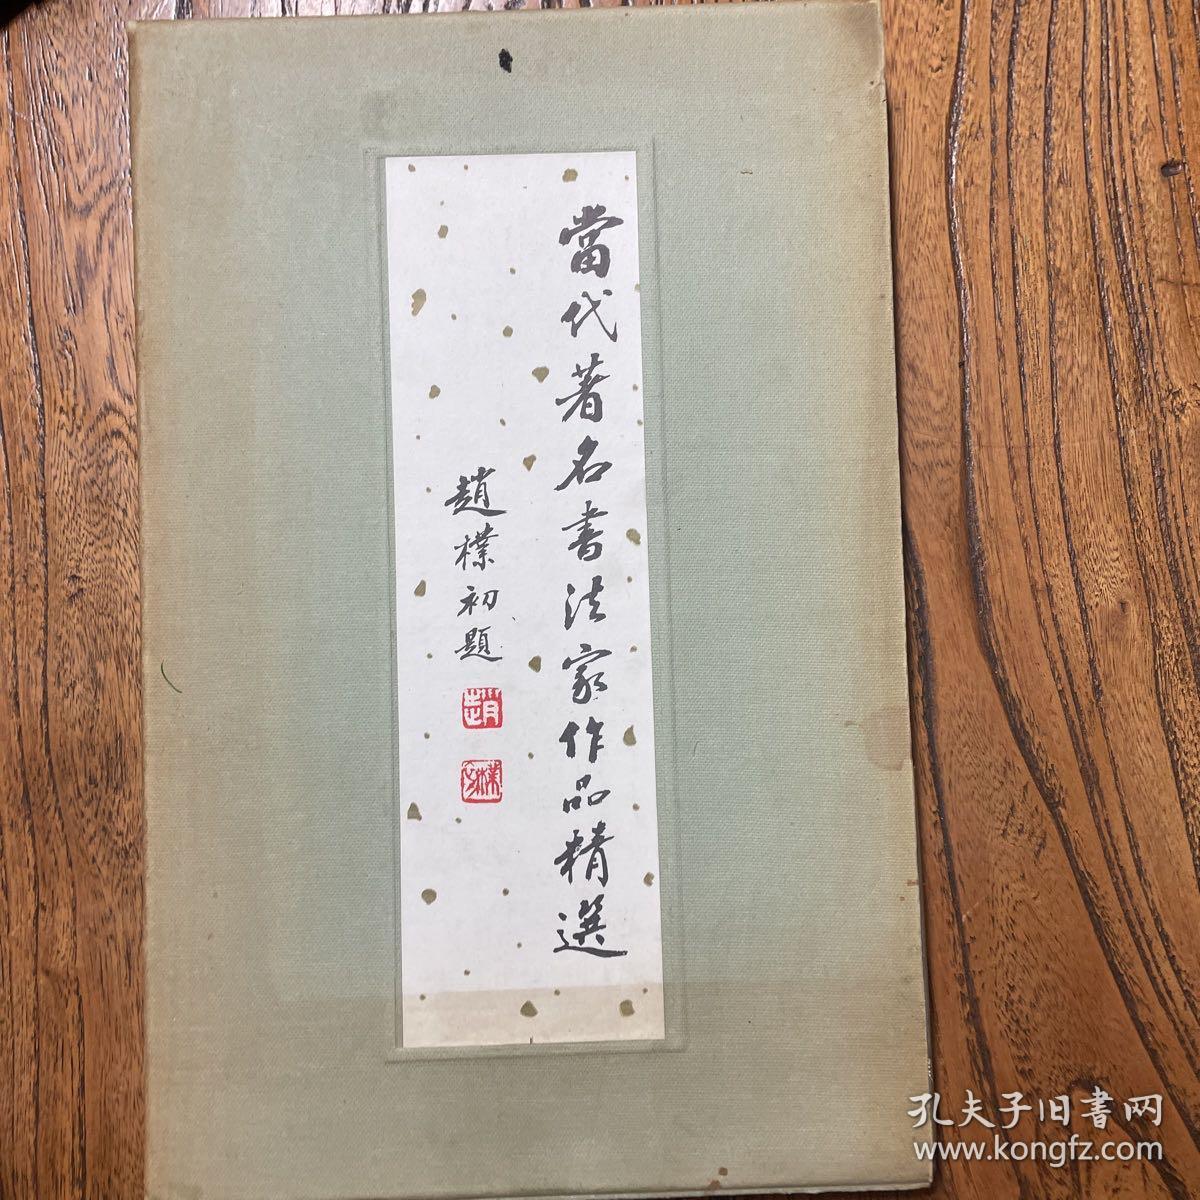 當代著名書法家作品精選
趙樸初題
趙
樸初
孔夫子旧書网
www.kongfz.com